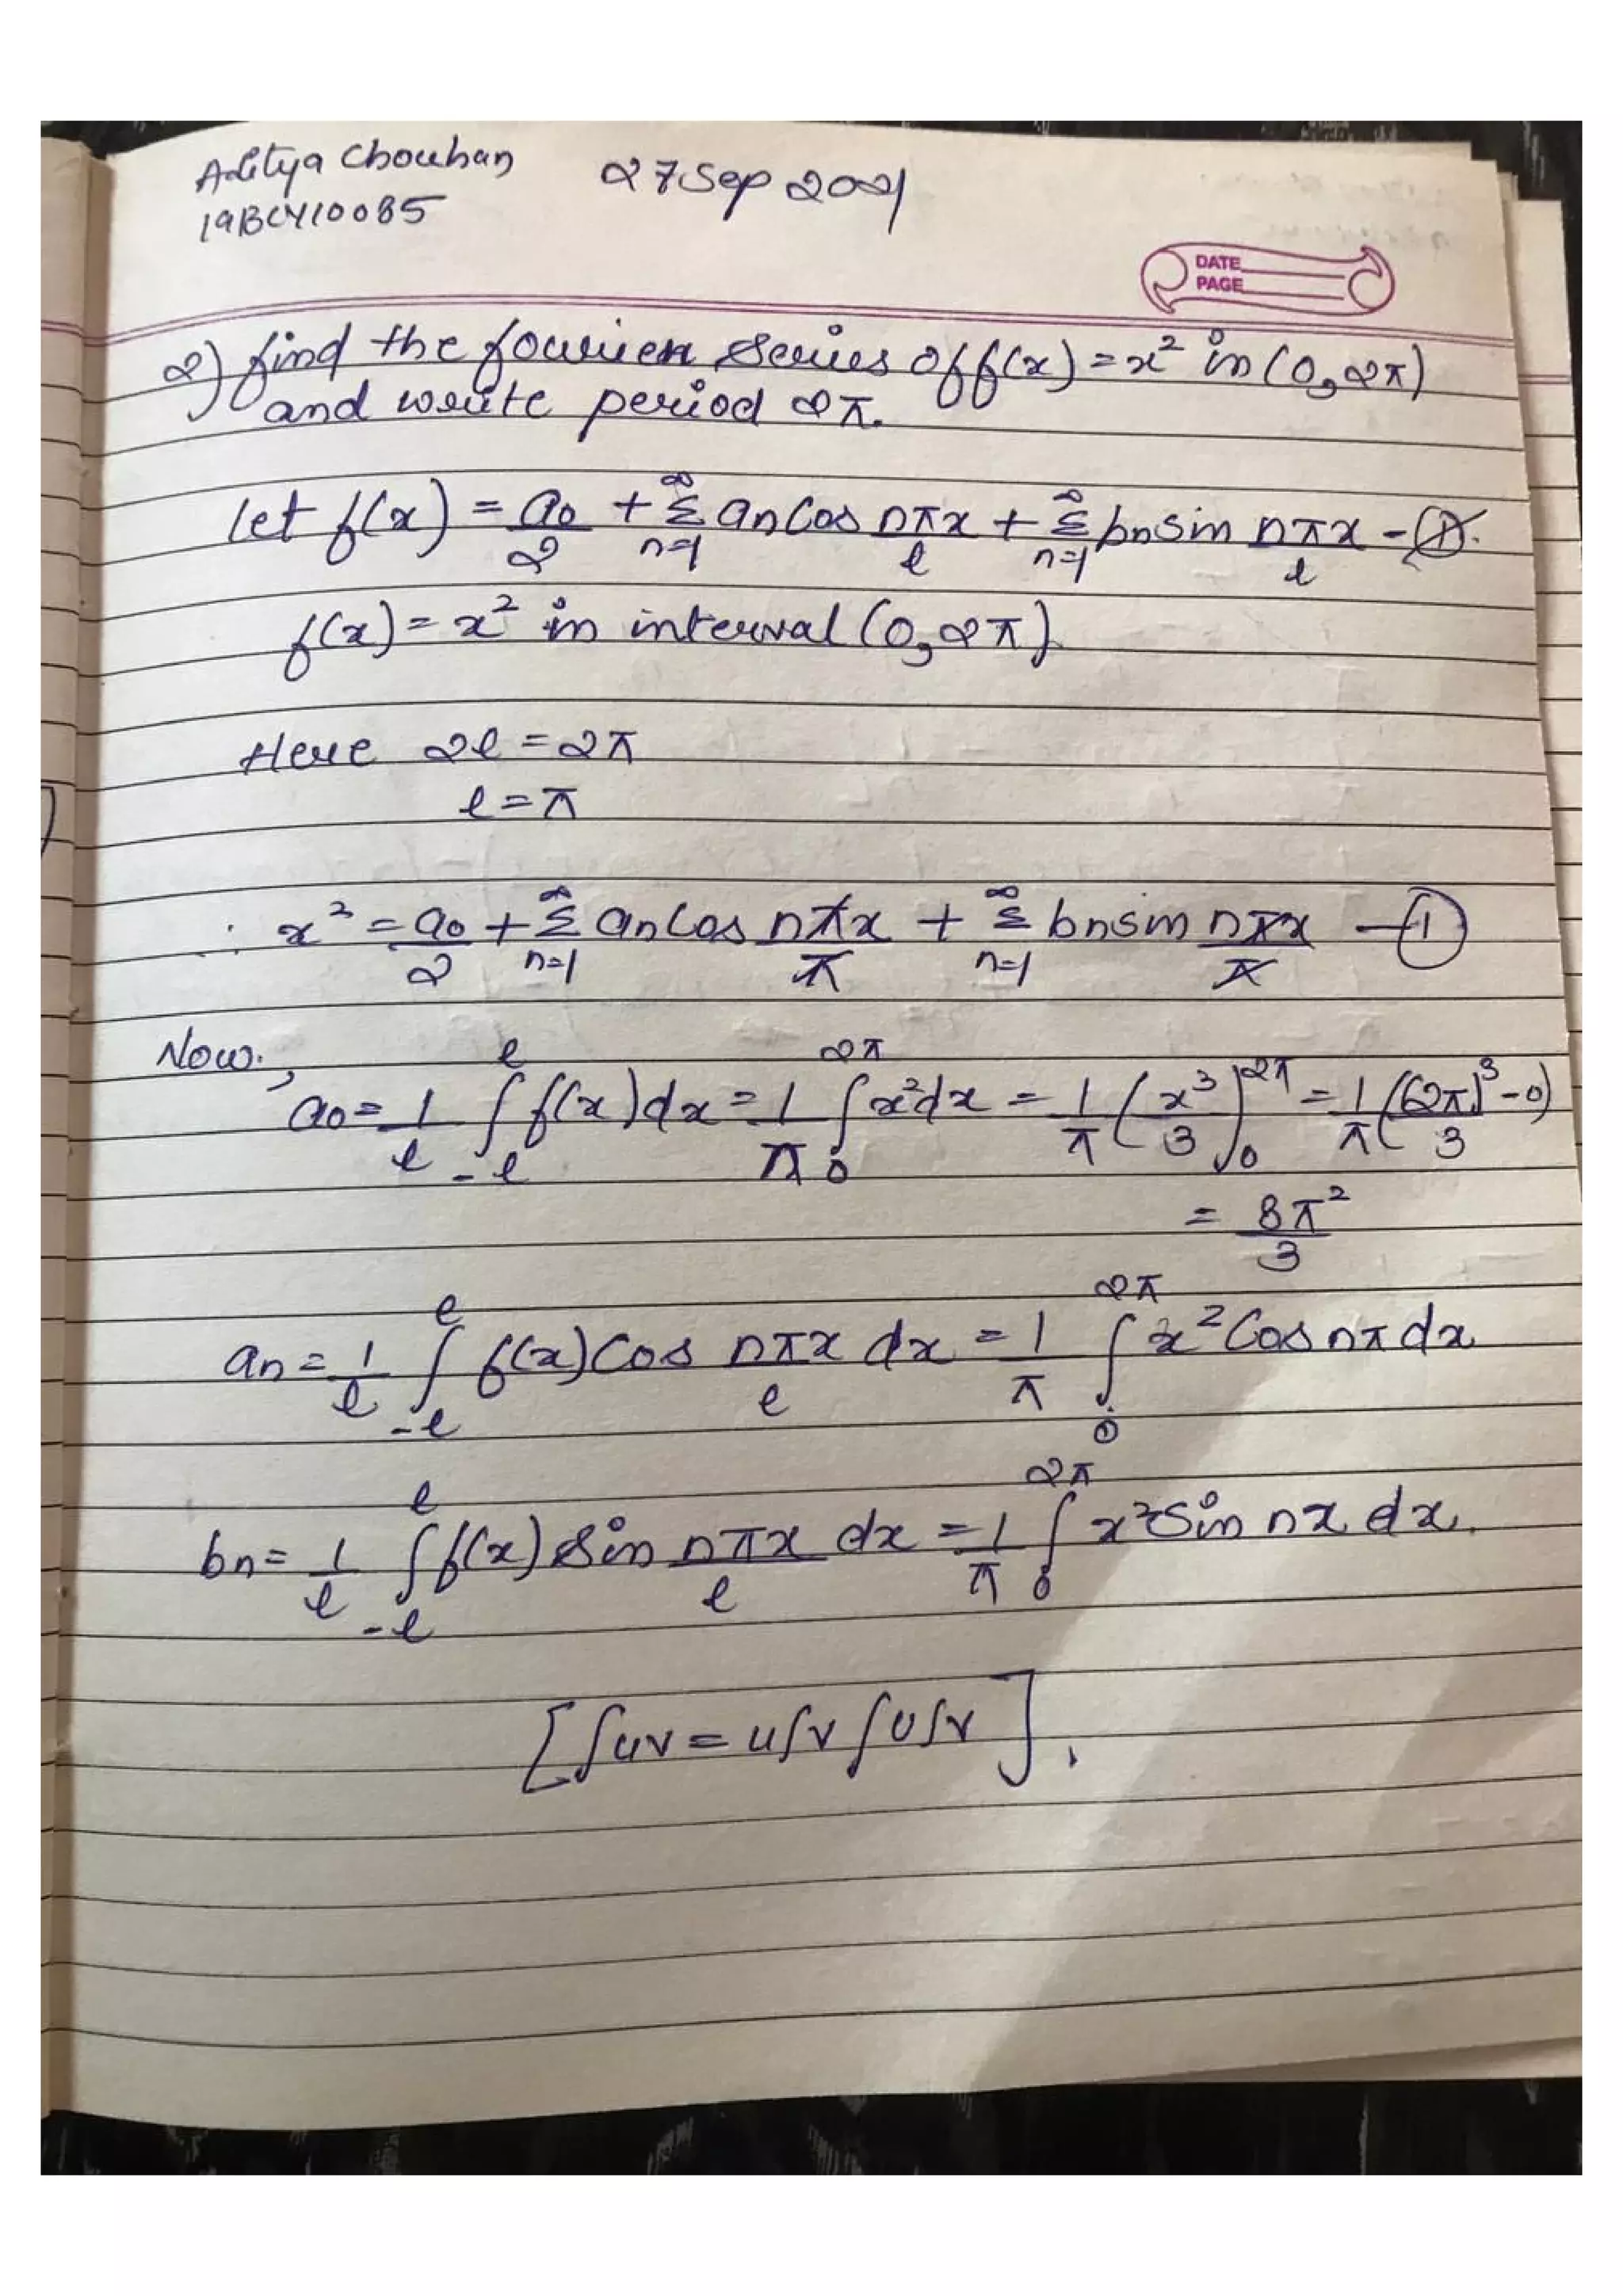 Aditya Chouhan 27 Sep 2021
19BCY10085
DATE
PAGE
2) find the fourier series of f(x) = x² in (0, 2π)
and write period 2π.
let f(x) = a0/2 + ∞Σn=1 an cos nπx/l + ∞Σn=1 bn sin nπx/l - ①.
f(x) = x² in interval (0, 2π)
Here 2l = 2π
l = π
∴ x² = a0/2 + ∞Σn=1 an cos nπx/π + ∞Σn=1 bn sin nπx/π - ①
Now,
a0 = 1/l ∫_{-l}^{l} f(x) dx = 1/π ∫_{0}^{2π} x² dx = 1/π (x³/3)_{0}^{2π} = 1/π ((2π)³/3 - 0)
= 8π²/3
an = 1/l ∫_{-l}^{l} f(x) cos nπx/l dx = 1/π ∫_{0}^{2π} x² cos nπ dx
bn = 1/l ∫_{-l}^{l} f(x) sin nπx/l dx = 1/π ∫_{0}^{2π} x² sin nx dx.
[∫uv = u∫v ∫u∫v].